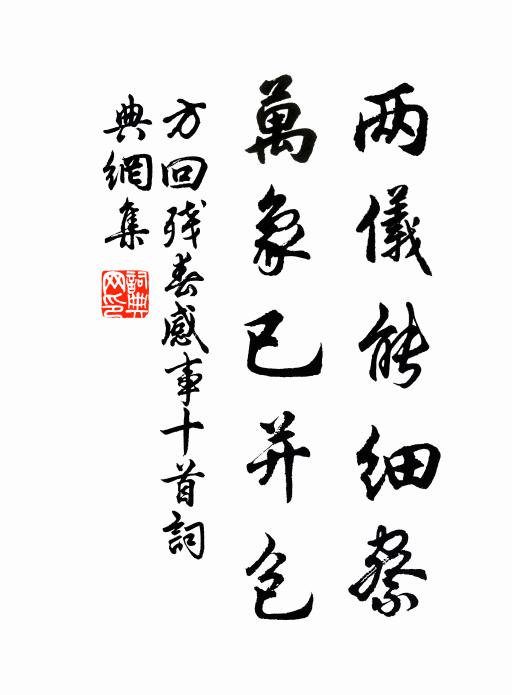 两儀能細察
萬象已并包
方回殘春感事十首詞
典網集
詞典網印